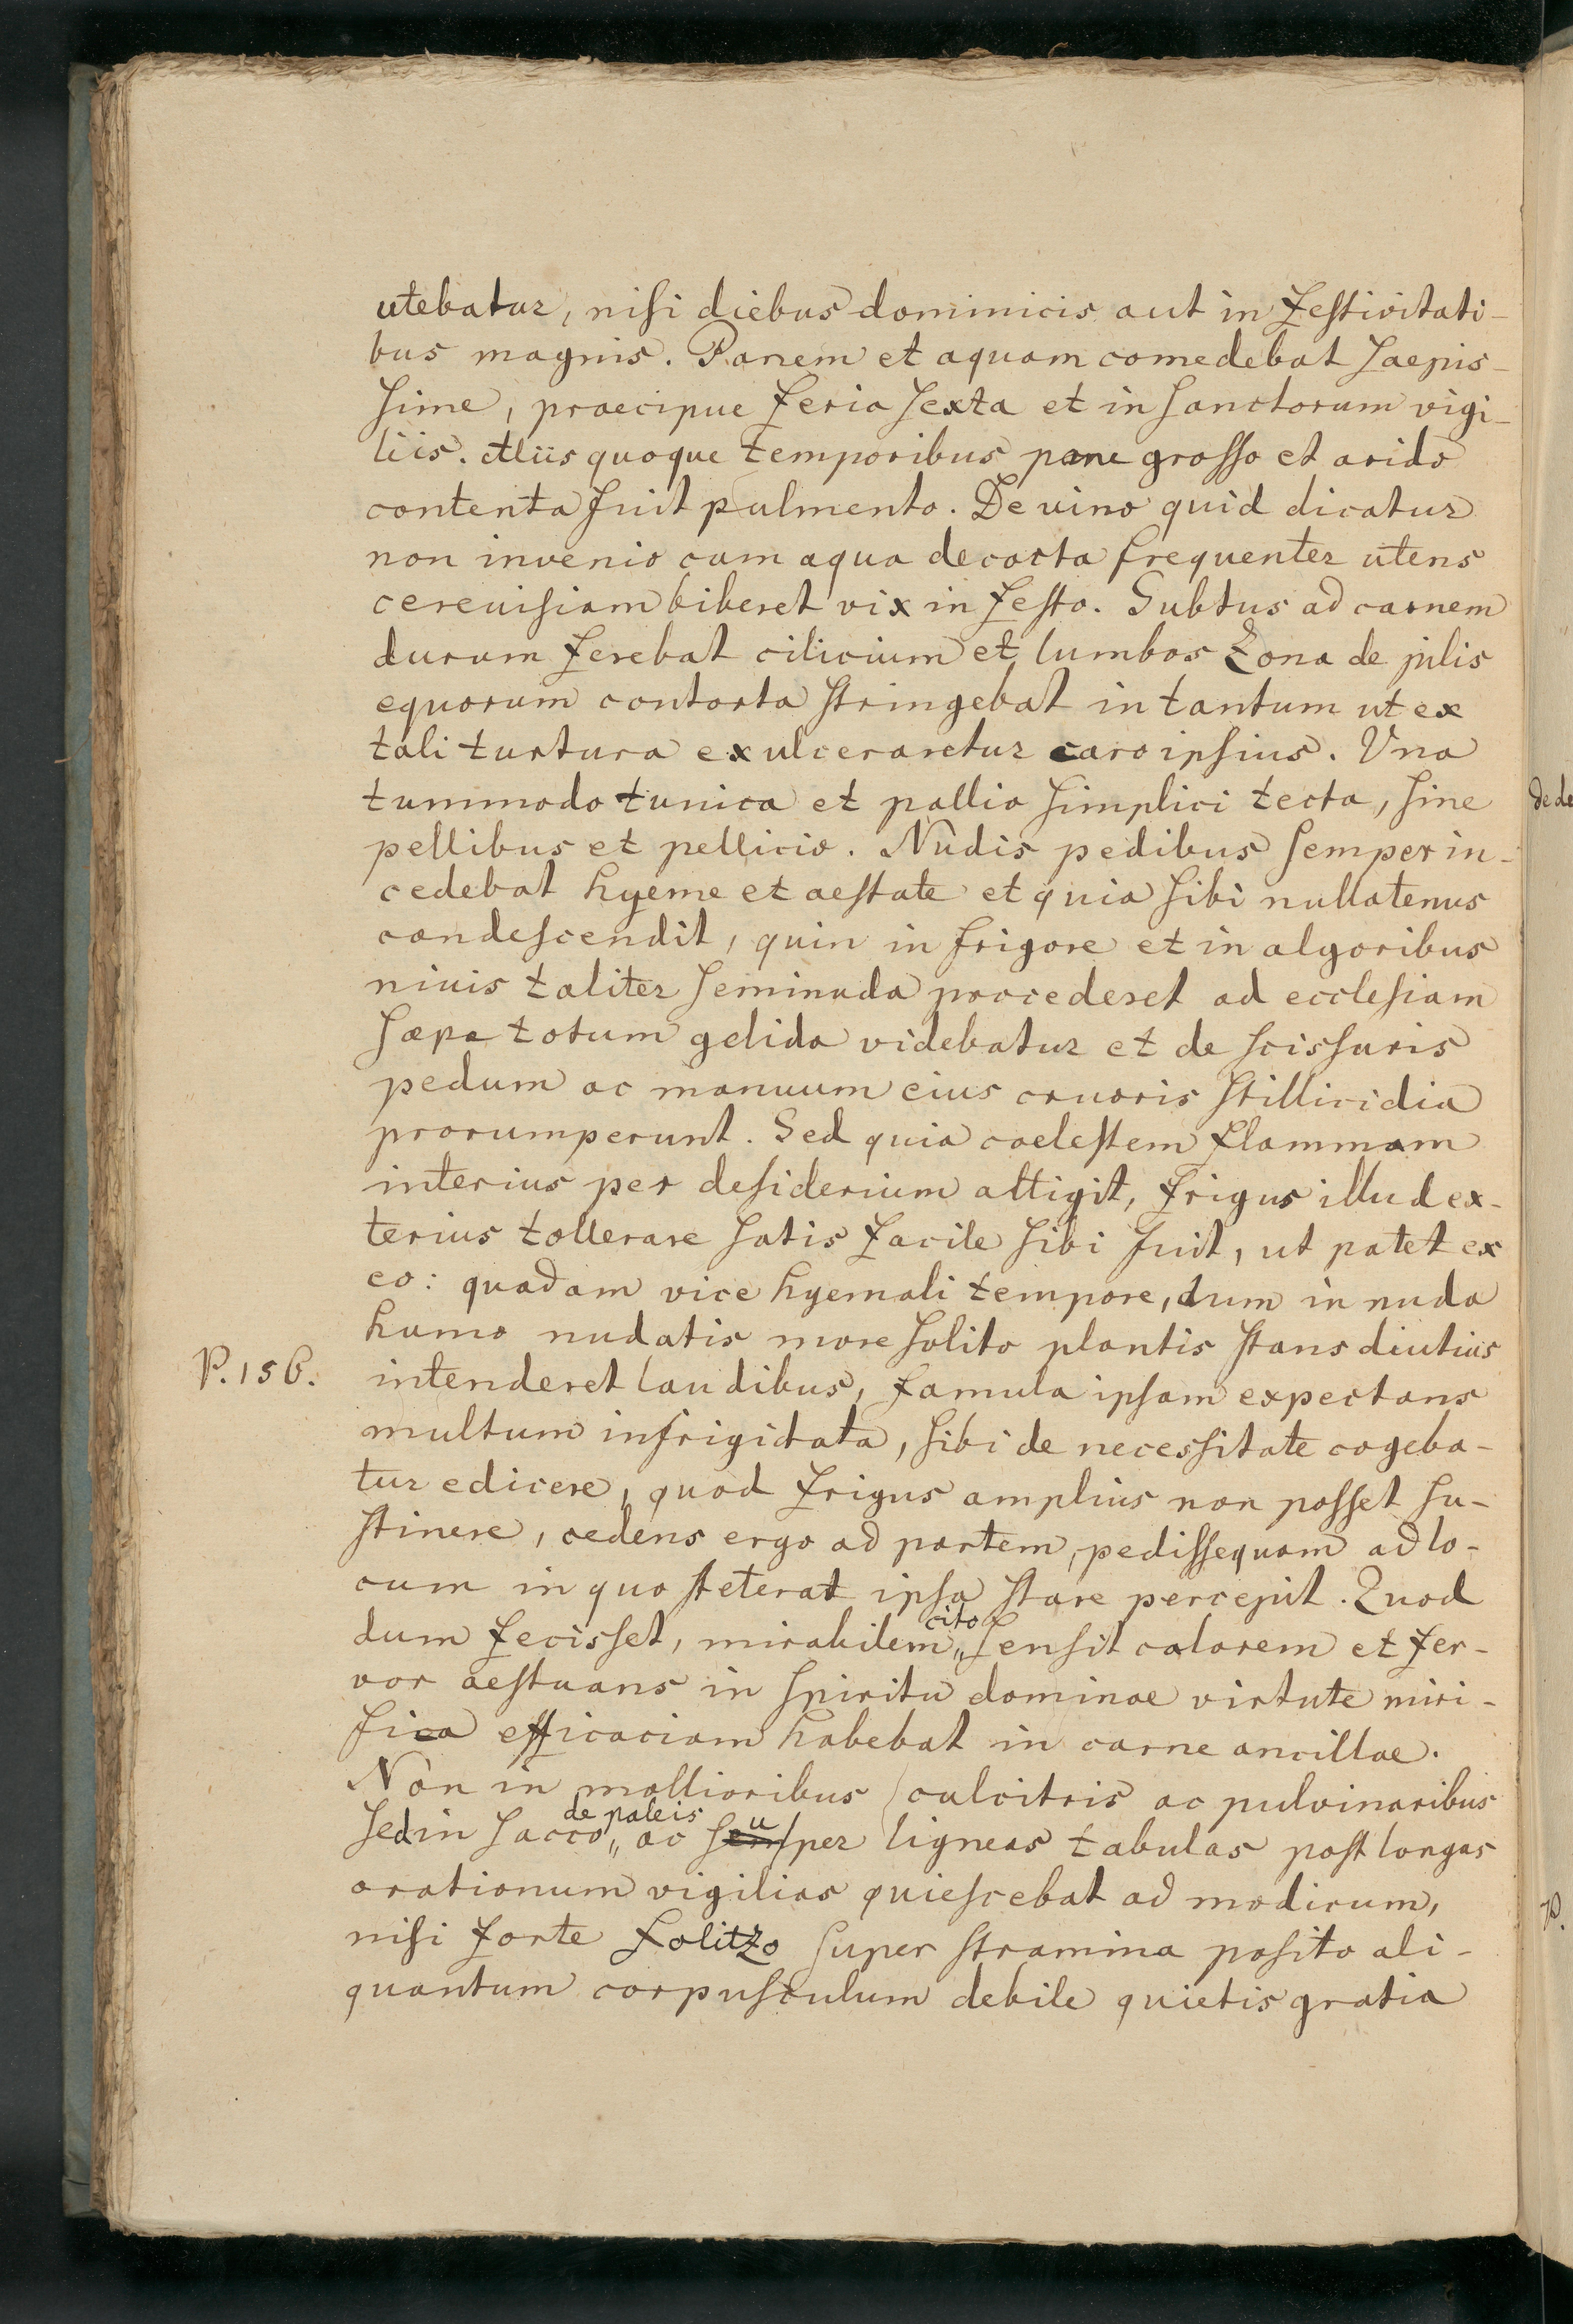 utebatur, nisi diebus dominicis aut in festivitati-
bus magnis. Panem et aquam comedebat saepis-
sime, praecipue feria sexta et in sanctorum vigi-
liis. Aliis quoque temporibus pane grosso et arido
contenta fuit pulmento. De vino quid dicatur
non invenio cum aqua decocta frequenter utens
cereuisiam biberet vix in festo. Subtus ad carnem
durum ferebat cilicium et lumbos zona de pilis
equorum contorta stringebat in tantum ut ex
tali turtura exulceraretur caro ipsius. Una
tummodo tunica et pallio simplici tecta, sine
pellibus et pellicio. Nudis pedibus semper in-
cedebat hyeme et aestate et quia sibi nullatenus
condescendit, quin in frigore et in algoribus
niuis taliter seminuda procederet ad ecclesiam
saepe totum gelida videbatur et de scissuris
pedum ac manuum eius cruoris stillicidia
prorumperunt. Sed quia coelestem flammam
interius per desiderium attigit, frigus illud ex-
terius tollerare satis facile sibi fuit, ut patet ex
eo: quadam vice hyemali tempore, dum in nuda
humo nudatis more solito plantis stans diutius
P. 156. intenderet laudibus, famula ipsam expectans
multum infrigidata, sibi de necessitate cogeba-
tur edicere, quod frigus amplius non posset su-
stinere, cedens ergo ad partem, pedissequam ad lo-
cum in quo steterat ipsa stare percepit. Quod
dum fecisset, mirabilem cito sensit calorem et fer-
vor aestuans in spiritu dominae virtute miri-
fica efficaciam habebat in carne ancillae.
Non in mollioribus culcitris ac pulvinaribus
sed in sacco de paleis ac super ligneas tabulas post longas
orationum vigilias quiescebat ad modicum,
nisi forte folitzo super stramina posito ali-
quantum corpusculum debile quietis gratia